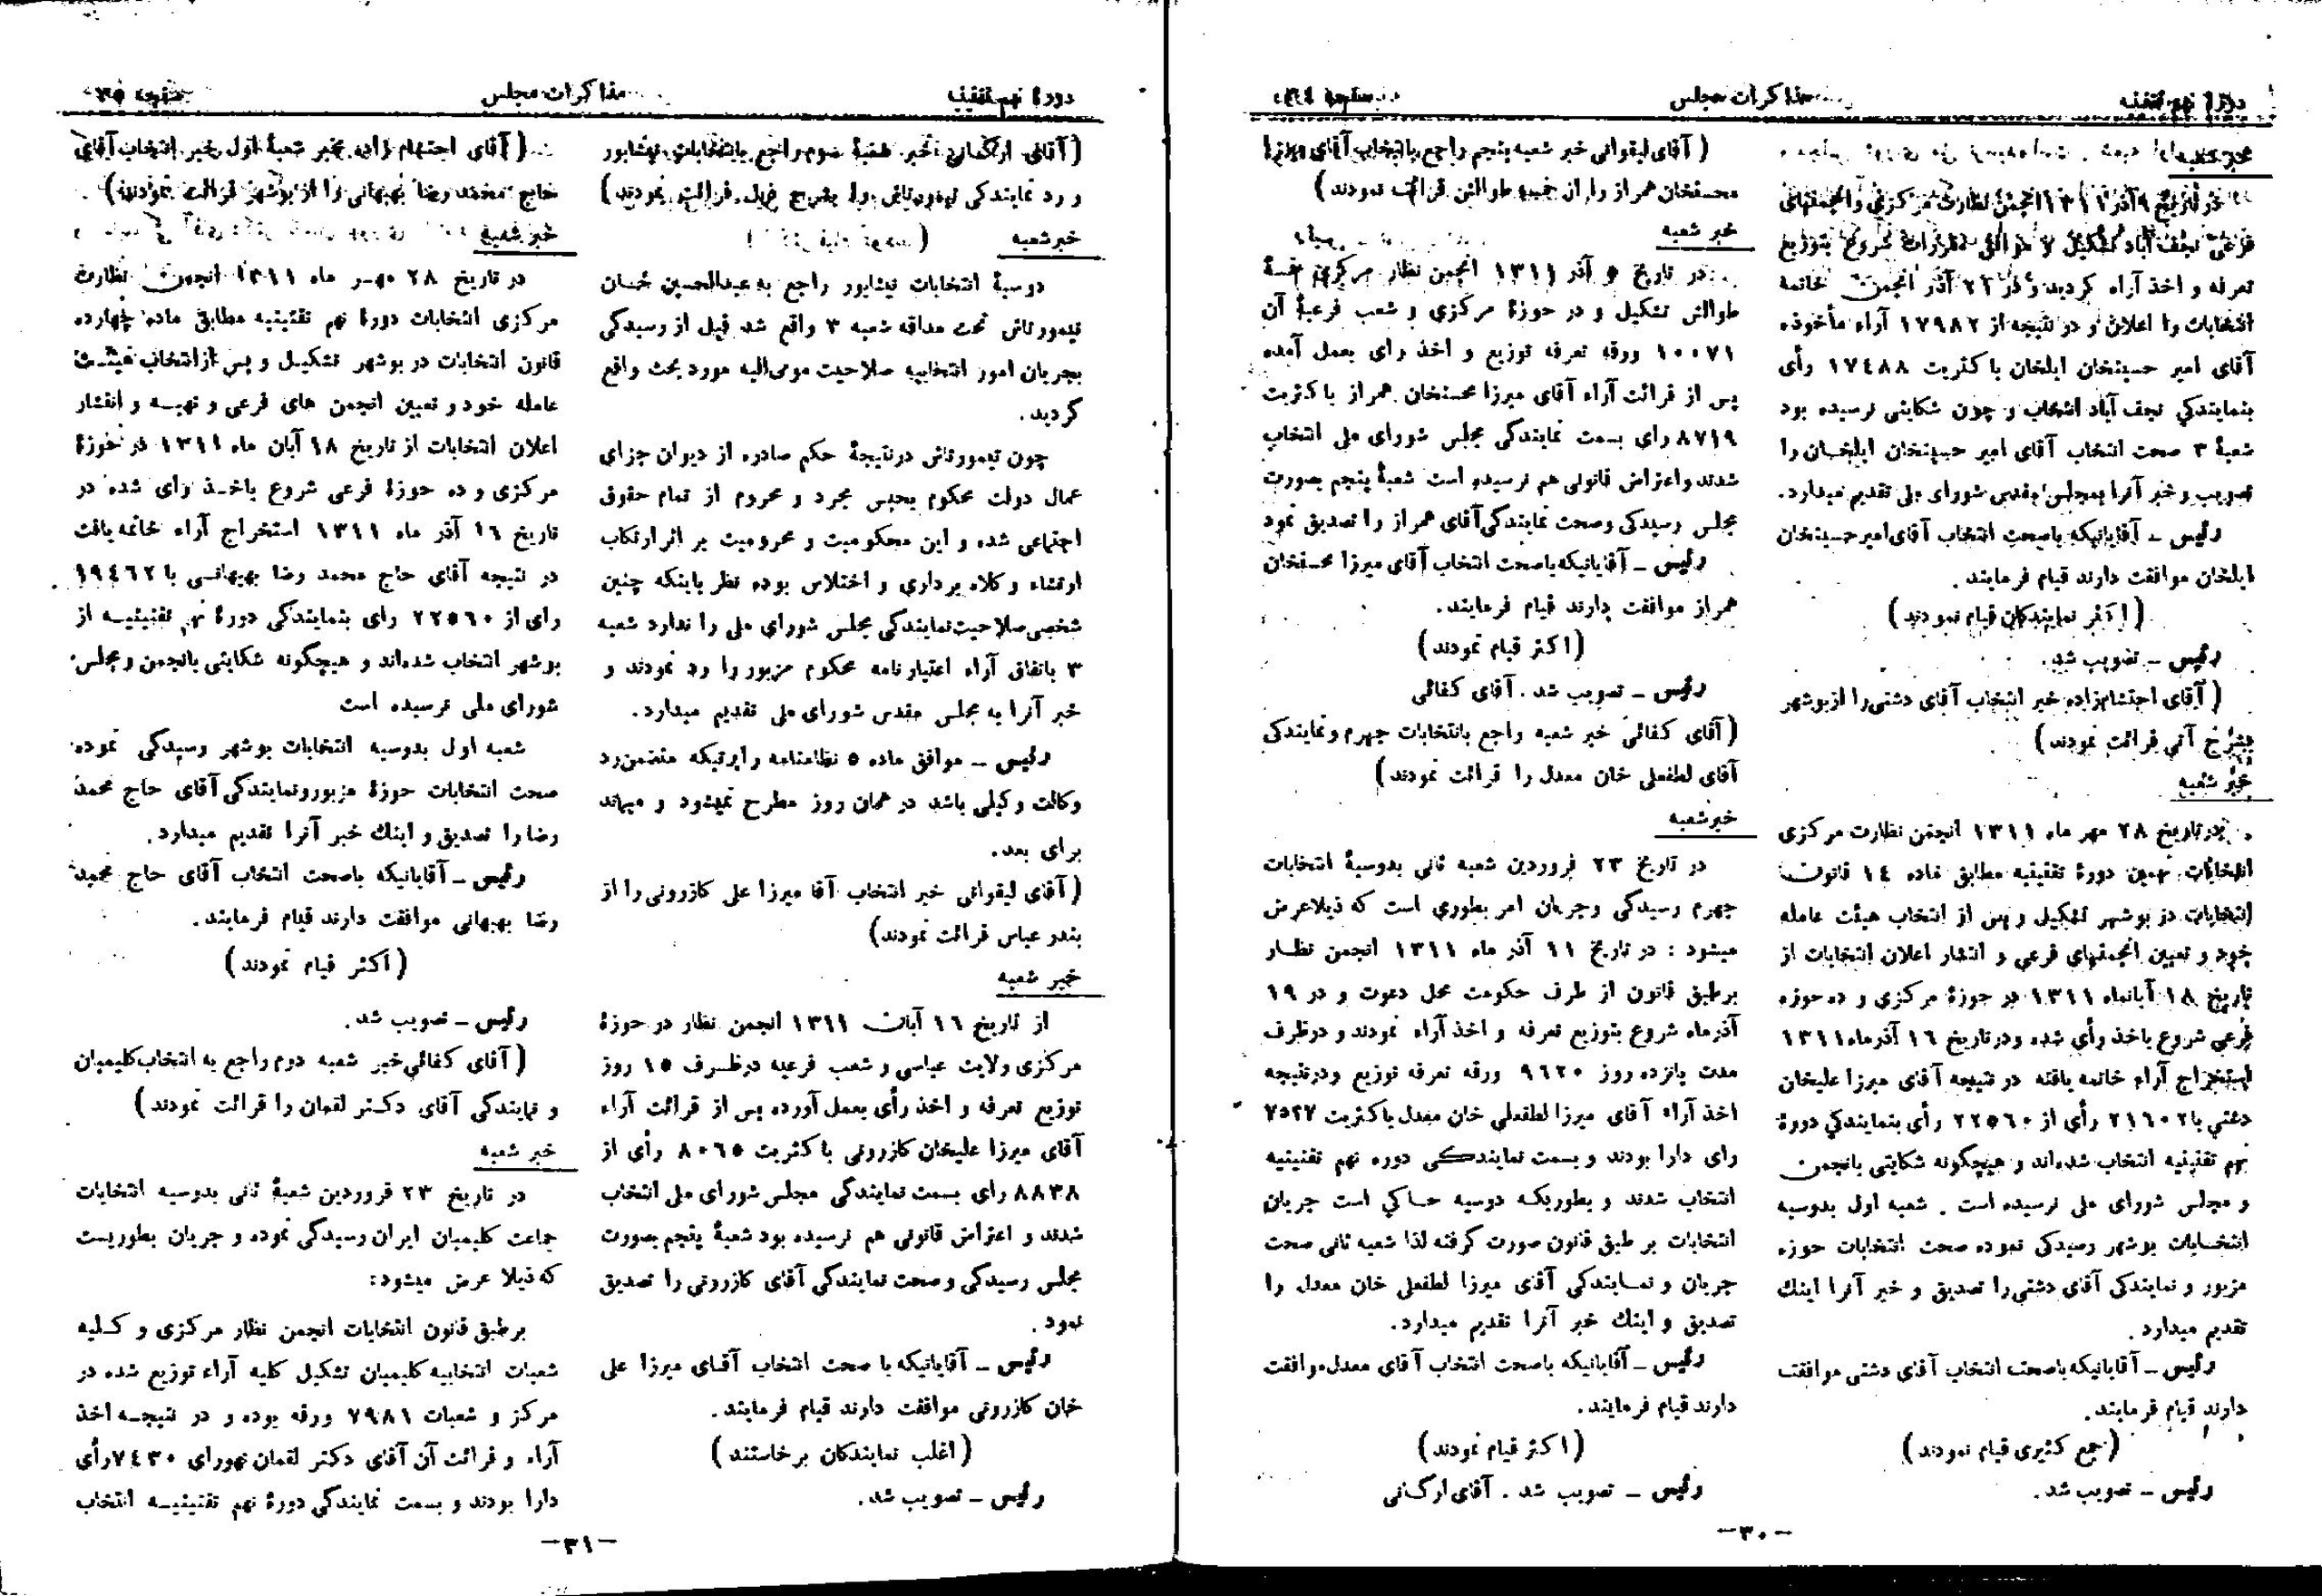 دورهٔ نهم تقنینیه
مذاکرات مجلس
صفحه
خبر شعبه
در تاریخ ۹ آذر ۱۳۱۱ انجمن نظارت مرکزی و انجمنهای
فرعی نجف آباد تشکیل و موافق مقررات شروع بتوزیع
تعرفه و اخذ آراء کردید و در ۲۲ آذر انجمن خاتمه
انتخابات را اعلان و در نتیجه از ۱۷۹۸۲ آراء مأخوذه
آقای امیر حسینخان ایلخان با کثریت ۱۷٤۸۸ رأی
بنمایندکی نجف آباد انتخاب و چون شکایتی نرسیده بود
شعبهٔ ۳ صحت انتخاب آقای امیر حسینخان ایلخان را
تصویب و خبر آنرا بمجلس مقدس شورای ملی تقدیم میدارد.
رئیس ـ آقایانیکه باصحت انتخاب آقای امیر حسینخان
ایلخان موافقت دارند قیام فرمایند.
(اکثر نمایندکان قیام نمودند)
رئیس ـ تصویب شد.
(آقای احتشام‌زاده خبر انتخاب آقای دشتی را از بوشهر
بشرح آتی قرائت نمودند)
خبر شعبه
در تاریخ ۲۸ مهر ماه ۱۳۱۱ انجمن نظارت مرکزی
انتخابات نهمین دورهٔ تقنینیه مطابق ماده ۱٤ قانون
انتخابات در بوشهر تشکیل و پس از انتخاب هیئت عامله
خود و تعیین انجمنهای فرعی و انتشار اعلان انتخابات از
تاریخ ۱۸ آبانماه ۱۳۱۱ در حوزهٔ مرکزی و ده حوزه
فرعی شروع باخذ رأی شده و در تاریخ ۱٦ آذرماه ۱۳۱۱
استخراج آراء خاتمه یافته در نتیجه آقای میرزا علیخان
دشتی با ۲۱٦۰۲ رأی از ۲۲۵٦۰ رأی بنمایندکی دورهٔ
نهم تقنینیه انتخاب شده‌اند و هیچکونه شکایتی بانجمن
و مجلس شورای ملی نرسیده است . شعبه اول بدوسیه
انتخابات بوشهر رسیدکی نموده صحت انتخابات حوزه
مزبور و نمایندکی آقای دشتی را تصدیق و خبر آنرا اینك
تقدیم میدارد.
رئیس ـ آقایانیکه باصحت انتخاب آقای دشتی موافقت
دارند قیام فرمایند.
(جمع کثیری قیام نمودند)
رئیس ـ تصویب شد.
(آقای لیقوانی خبر شعبه پنجم راجع بانتخاب آقای میرزا
محسنخان همراز را از خمسه طوالش قرائت نمودند)
خبر شعبه
در تاریخ ۹ آذر ۱۳۱۱ انجمن نظار مرکزی خمسهٔ
طوالش تشکیل و در حوزهٔ مرکزی و شعب فرعیهٔ آن
۱۰۰۷۱ ورقه تعرفه توزیع و اخذ رای بعمل آمده
پس از قرائت آراء آقای میرزا محسنخان همراز باکثریت
۸۷۱۹ رای بسمت نمایندکی مجلس شورای ملی انتخاب
شدند و اعتراض قانونی هم نرسیده است شعبهٔ پنجم بصورت
مجلس رسیدکی و صحت نمایندکی آقای همراز را تصدیق نمود
رئیس ـ آقایانیکه باصحت انتخاب آقای میرزا محسنخان
همراز موافقت دارند قیام فرمایند.
(اکثر قیام نمودند)
رئیس ـ تصویب شد . آقای کفائی
(آقای کفائی خبر شعبه راجع بانتخابات جهرم و نمایندکی
آقای لطفعلی خان معدل را قرائت نمودند)
خبر شعبه
در تاریخ ۲۳ فروردین شعبه ثانی بدوسیهٔ انتخابات
جهرم رسیدکی وجریان امر بطوری است که ذیلا عرض
میشود : در تاریخ ۱۱ آذر ماه ۱۳۱۱ انجمن نظار
برطبق قانون از طرف حکومت محل دعوت و در ۱۹
آذرماه شروع بتوزیع تعرفه و اخذ آراء نمودند و درظرف
مدت پانزده روز ۹٦۲۰ ورقه تعرفه توزیع ودرنتیجه
اخذ آراء آقای میرزا لطفعلی خان معدل باکثریت ۷۵۲۷
رای دارا بودند و بسمت نمایندکی دوره نهم تقنینیه
انتخاب شدند و بطوریکه دوسیه حاکی است جریان
انتخابات بر طبق قانون صورت گرفته لذا شعبه ثانی صحت
جریان و نمایندکی آقای میرزا لطفعلی خان معدل را
تصدیق و اینك خبر آنرا تقدیم میدارد.
رئیس ـ آقایانیکه باصحت انتخاب آقای معدل موافقت
دارند قیام فرمایند.
(اکثر قیام نمودند)
رئیس ـ تصویب شد . آقای ارکانی
ـ۳۰ـ
دورهٔ نهم تقنینیه
مذاکرات مجلس
صفحه ۳۵
(آقای ارکانی خبر شعبهٔ سوم راجع بانتخابات نیشابور
و رد نمایندکی تیمورتاش را بشرح ذیل قرائت نمودند)
خبر شعبه
دوسیهٔ انتخابات نیشابور راجع به عبدالحسین خان
تیمورتاش تحت مداقه شعبه ۳ واقع شد قبل از رسیدکی
بجریان امور انتخابیه صلاحیت مومی‌الیه مورد بحث واقع
کردید.
چون تیمورتاش درنتیجهٔ حکم صادره از دیوان جزای
عمال دولت محکوم بحبس مجرد و محروم از تمام حقوق
اجتماعی شده و این محکومیت و محرومیت بر اثر ارتکاب
ارتشاء و کلاه برداری و اختلاس بوده نظر باینکه چنین
شخصی صلاحیت نمایندکی مجلس شورای ملی را ندارد شعبه
۳ باتفاق آراء اعتبارنامه محکوم مزبور را رد نمودند و
خبر آنرا به مجلس مقدس شورای ملی تقدیم میدارد.
رئیس ـ موافق ماده ۵ نظامنامه راپرتیکه متضمن رد
وکالت وکیلی باشد در همان روز مطرح نمیشود و میماند
برای بعد.
(آقای لیقوانی خبر انتخاب آقا میرزا علی کازرونی را از
بندر عباس قرائت نمودند)
خبر شعبه
از تاریخ ۱٦ آبان ۱۳۱۱ انجمن نظار در حوزهٔ
مرکزی ولایت عباسی و شعب فرعیه درظرف ۱۵ روز
توزیع تعرفه و اخذ رأی بعمل آورده پس از قرائت آراء
آقای میرزا علیخان کازرونی باکثریت ۸۰٦۵ رأی از
۸۸۳۸ رای بسمت نمایندکی مجلس شورای ملی انتخاب
شدند و اعتراض قانونی هم نرسیده بود شعبهٔ پنجم بصورت
مجلس رسیدکی و صحت نمایندکی آقای کازرونی را تصدیق
نمود.
رئیس ـ آقایانیکه با صحت انتخاب آقای میرزا علی
خان کازرونی موافقت دارند قیام فرمایند.
(اغلب نمایندکان برخاستند)
رئیس ـ تصویب شد.
(آقای احتشام زاده مخبر شعبهٔ اول خبر انتخاب آقای
حاج محمد رضا بهبهانی را از بوشهر قرائت نمودند)
خبر شعبه
در تاریخ ۲۸ مهر ماه ۱۳۱۱ انجمن نظارت
مرکزی انتخابات دورهٔ نهم تقنینیه مطابق ماده چهارده
قانون انتخابات در بوشهر تشکیل و پس از انتخاب هیئت
عامله خود و تعیین انجمن های فرعی و تهیه و انتشار
اعلان انتخابات از تاریخ ۱۸ آبان ماه ۱۳۱۱ در حوزهٔ
مرکزی و ده حوزهٔ فرعی شروع باخذ رای شده در
تاریخ ۱٦ آذر ماه ۱۳۱۱ استخراج آراء خاتمه یافت
در نتیجه آقای حاج محمد رضا بهبهانی با ۱۹٤٦۲
رای از ۲۲۵٦۰ رای بنمایندکی دورهٔ نهم تقنینیه از
بوشهر انتخاب شده‌اند و هیچگونه شکایتی بانجمن و مجلس
شورای ملی نرسیده است
شعبه اول بدوسیه انتخابات بوشهر رسیدکی نموده
صحت انتخابات حوزهٔ مزبور و نمایندکی آقای حاج محمد
رضا را تصدیق و اینك خبر آنرا تقدیم میدارد.
رئیس ـ آقایانیکه باصحت انتخاب آقای حاج محمد
رضا بهبهانی موافقت دارند قیام فرمایند.
(اکثر قیام نمودند)
رئیس ـ تصویب شد.
(آقای کفائی خبر شعبه دوم راجع به انتخاب کلیمیان
و نمایندکی آقای دکتر لقمان را قرائت نمودند)
خبر شعبه
در تاریخ ۲۳ فروردین شعبهٔ ثانی بدوسیه انتخابات
جماعت کلیمیان ایران رسیدکی نموده و جریان بطوریست
که ذیلا عرض میشود:
برطبق قانون انتخابات انجمن نظار مرکزی و کلیه
شعبات انتخابیه کلیمیان تشکیل کلیه آراء توزیع شده در
مرکز و شعبات ۷۹۸۱ ورقه بوده و در نتیجه اخذ
آراء و قرائت آن آقای دکتر لقمان نهورای ۷٤۳۰ رأی
دارا بودند و بسمت نمایندکی دورهٔ نهم تقنینیه انتخاب
ـ۳۱ـ